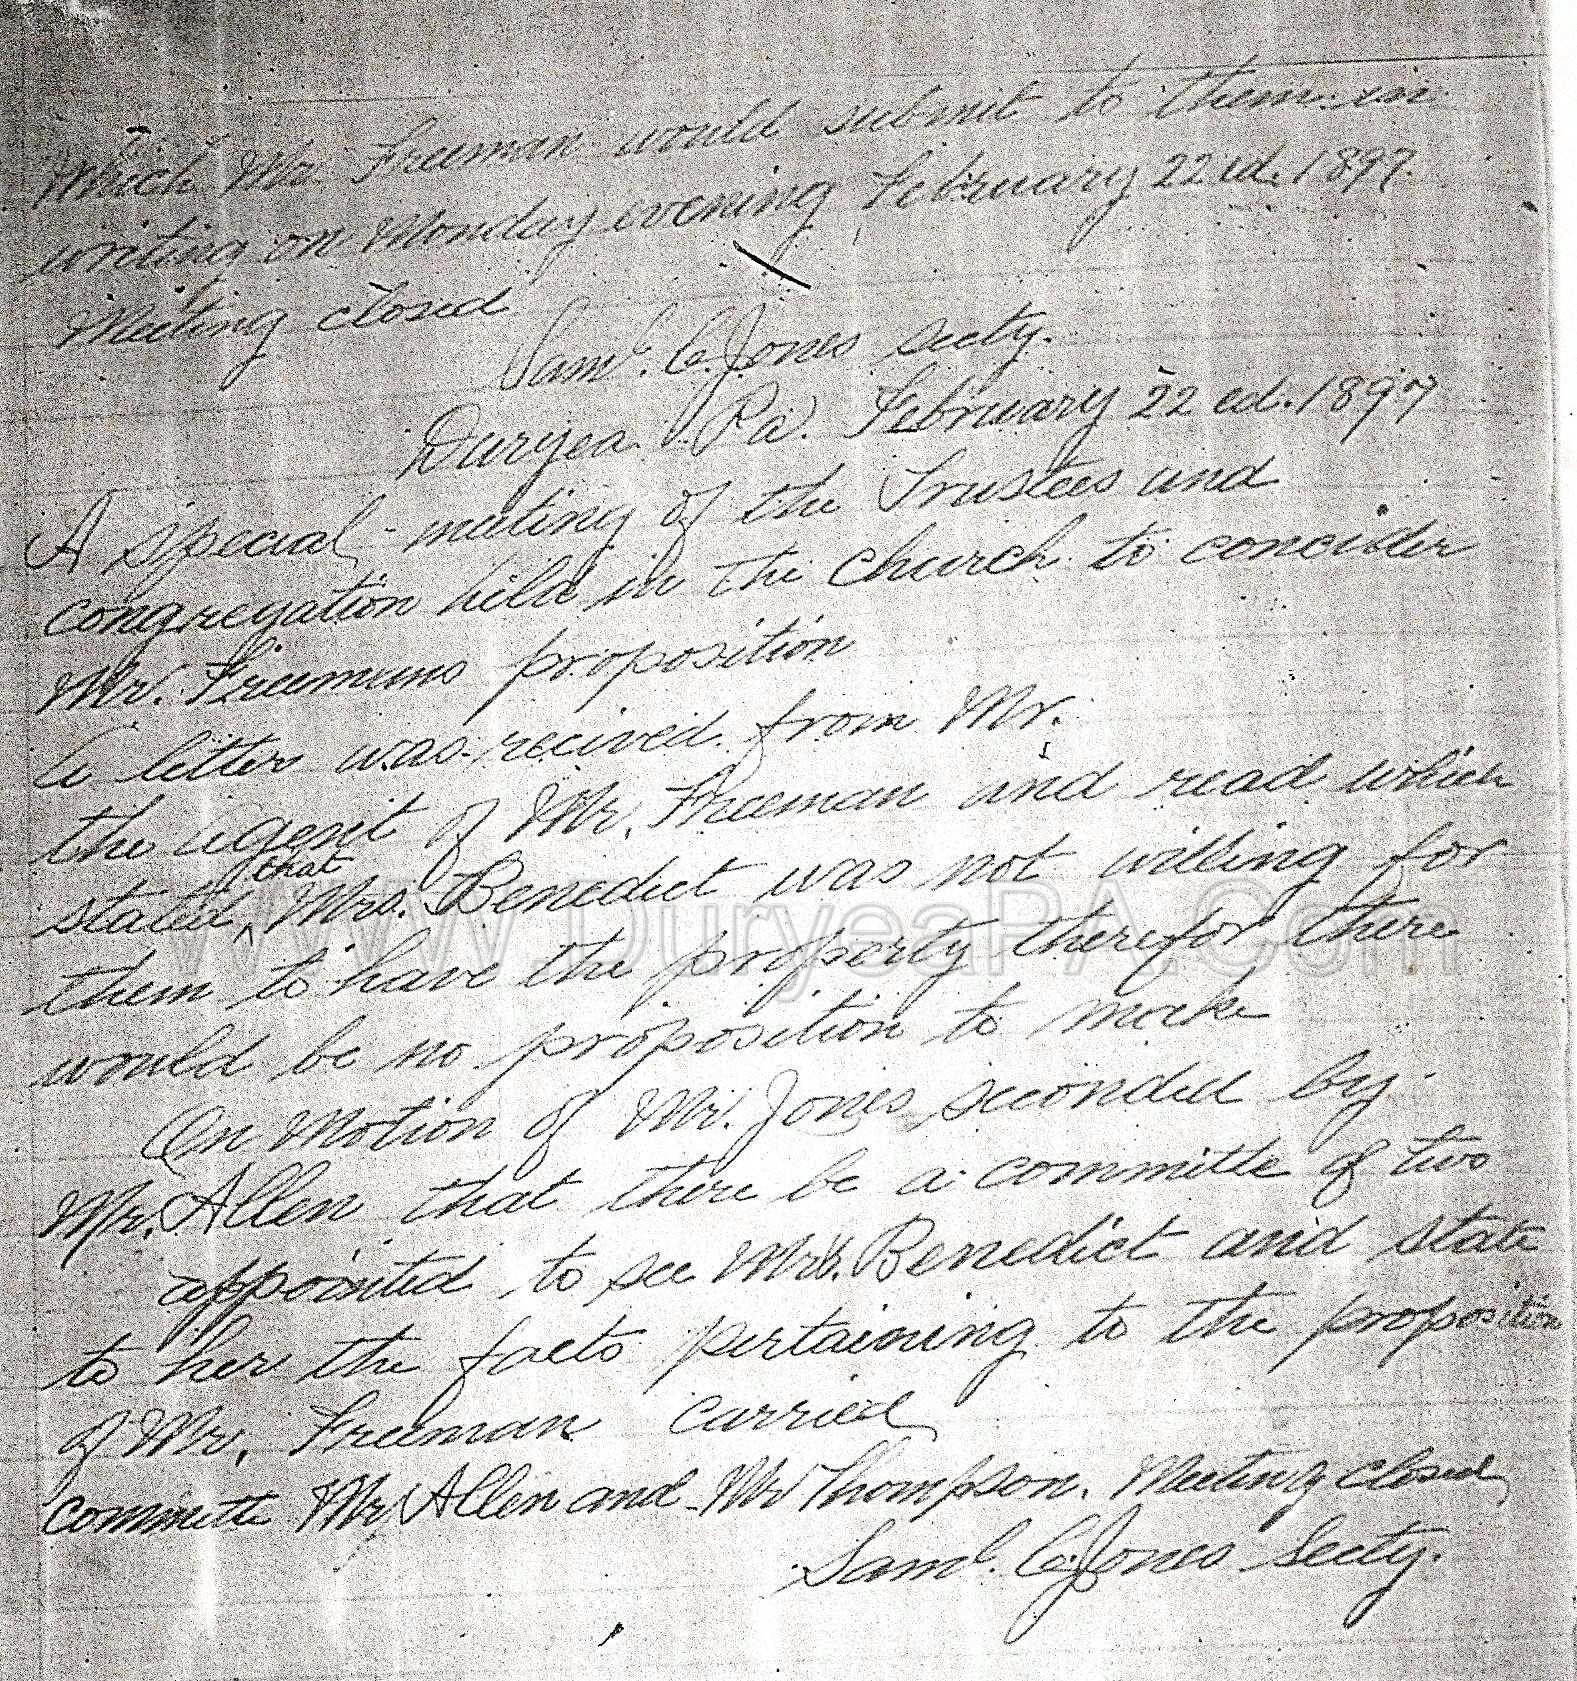 which Mr. Freeman would submit to them in
writing on Monday evening February 22ed. 1897.
Meeting closed
Saml. C. Jones secty.
Duryea Pa. February 22ed. 1897
A special meeting of the Trustees and
congregation held in the church to concider
Mr. Freemans proposition
A letter was recived from Mr.
the agent of Mr. Freeman and read which
stated that Mrs. Benedict was not willing for
them to have the property therefor there
would be no proposition to make
On motion of Mr. Jones seconded by
Mr. Allen that there be a committe of two
appointed to see Mrs. Benedict and state
to her the facts pertaining to the proposition
of Mr. Freeman carried
committe Mr Allen and Mr Thompson. Meeting closed
Saml. C. Jones Secty.
WWW.DuryeaPA.Com